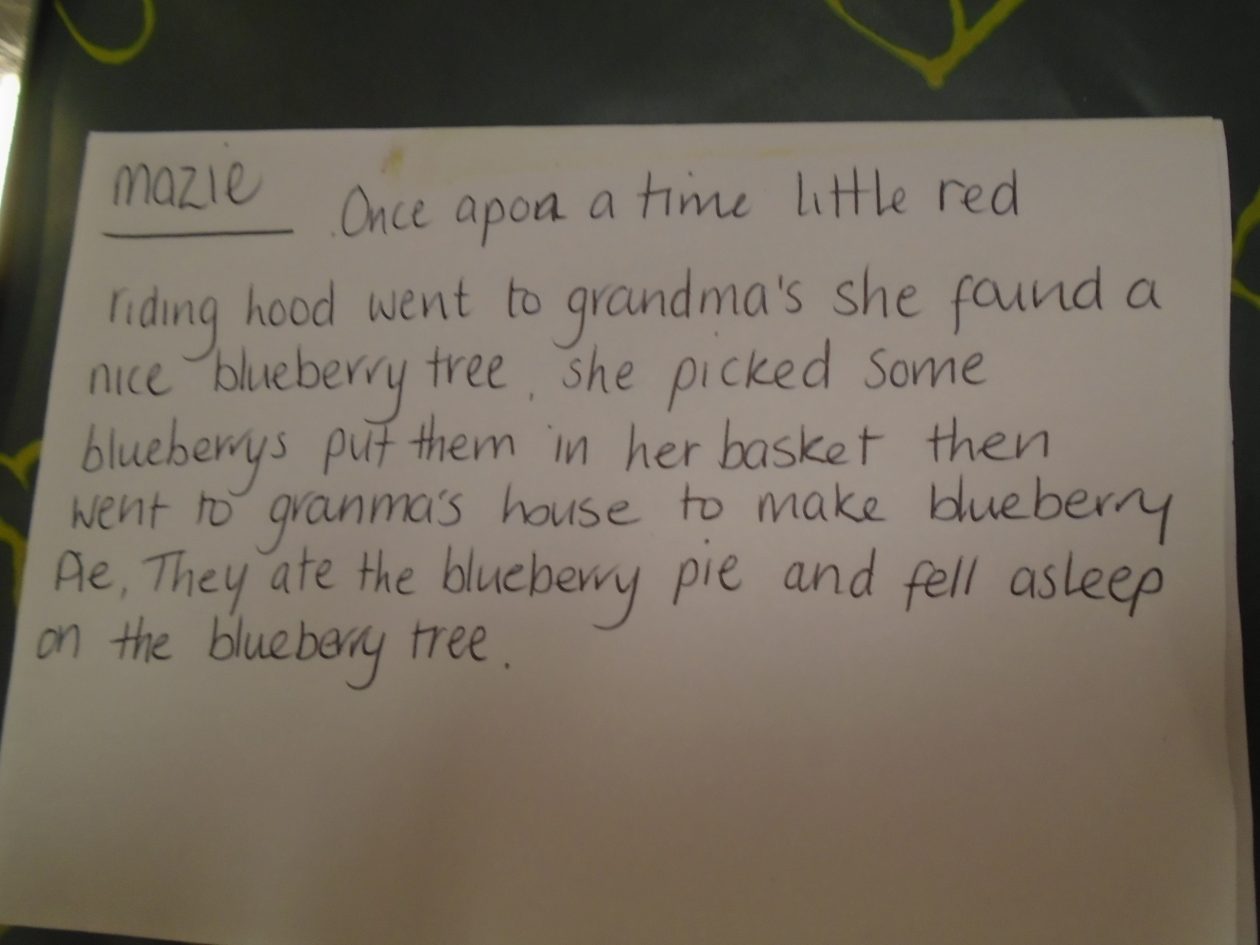 mazie Once apon a time little red
riding hood went to grandma's she found a
nice blueberry tree. she picked some
blueberrys put them in her basket then
went to granma's house to make blueberry
Pie, They ate the blueberry pie and fell asleep
on the blueberry tree.